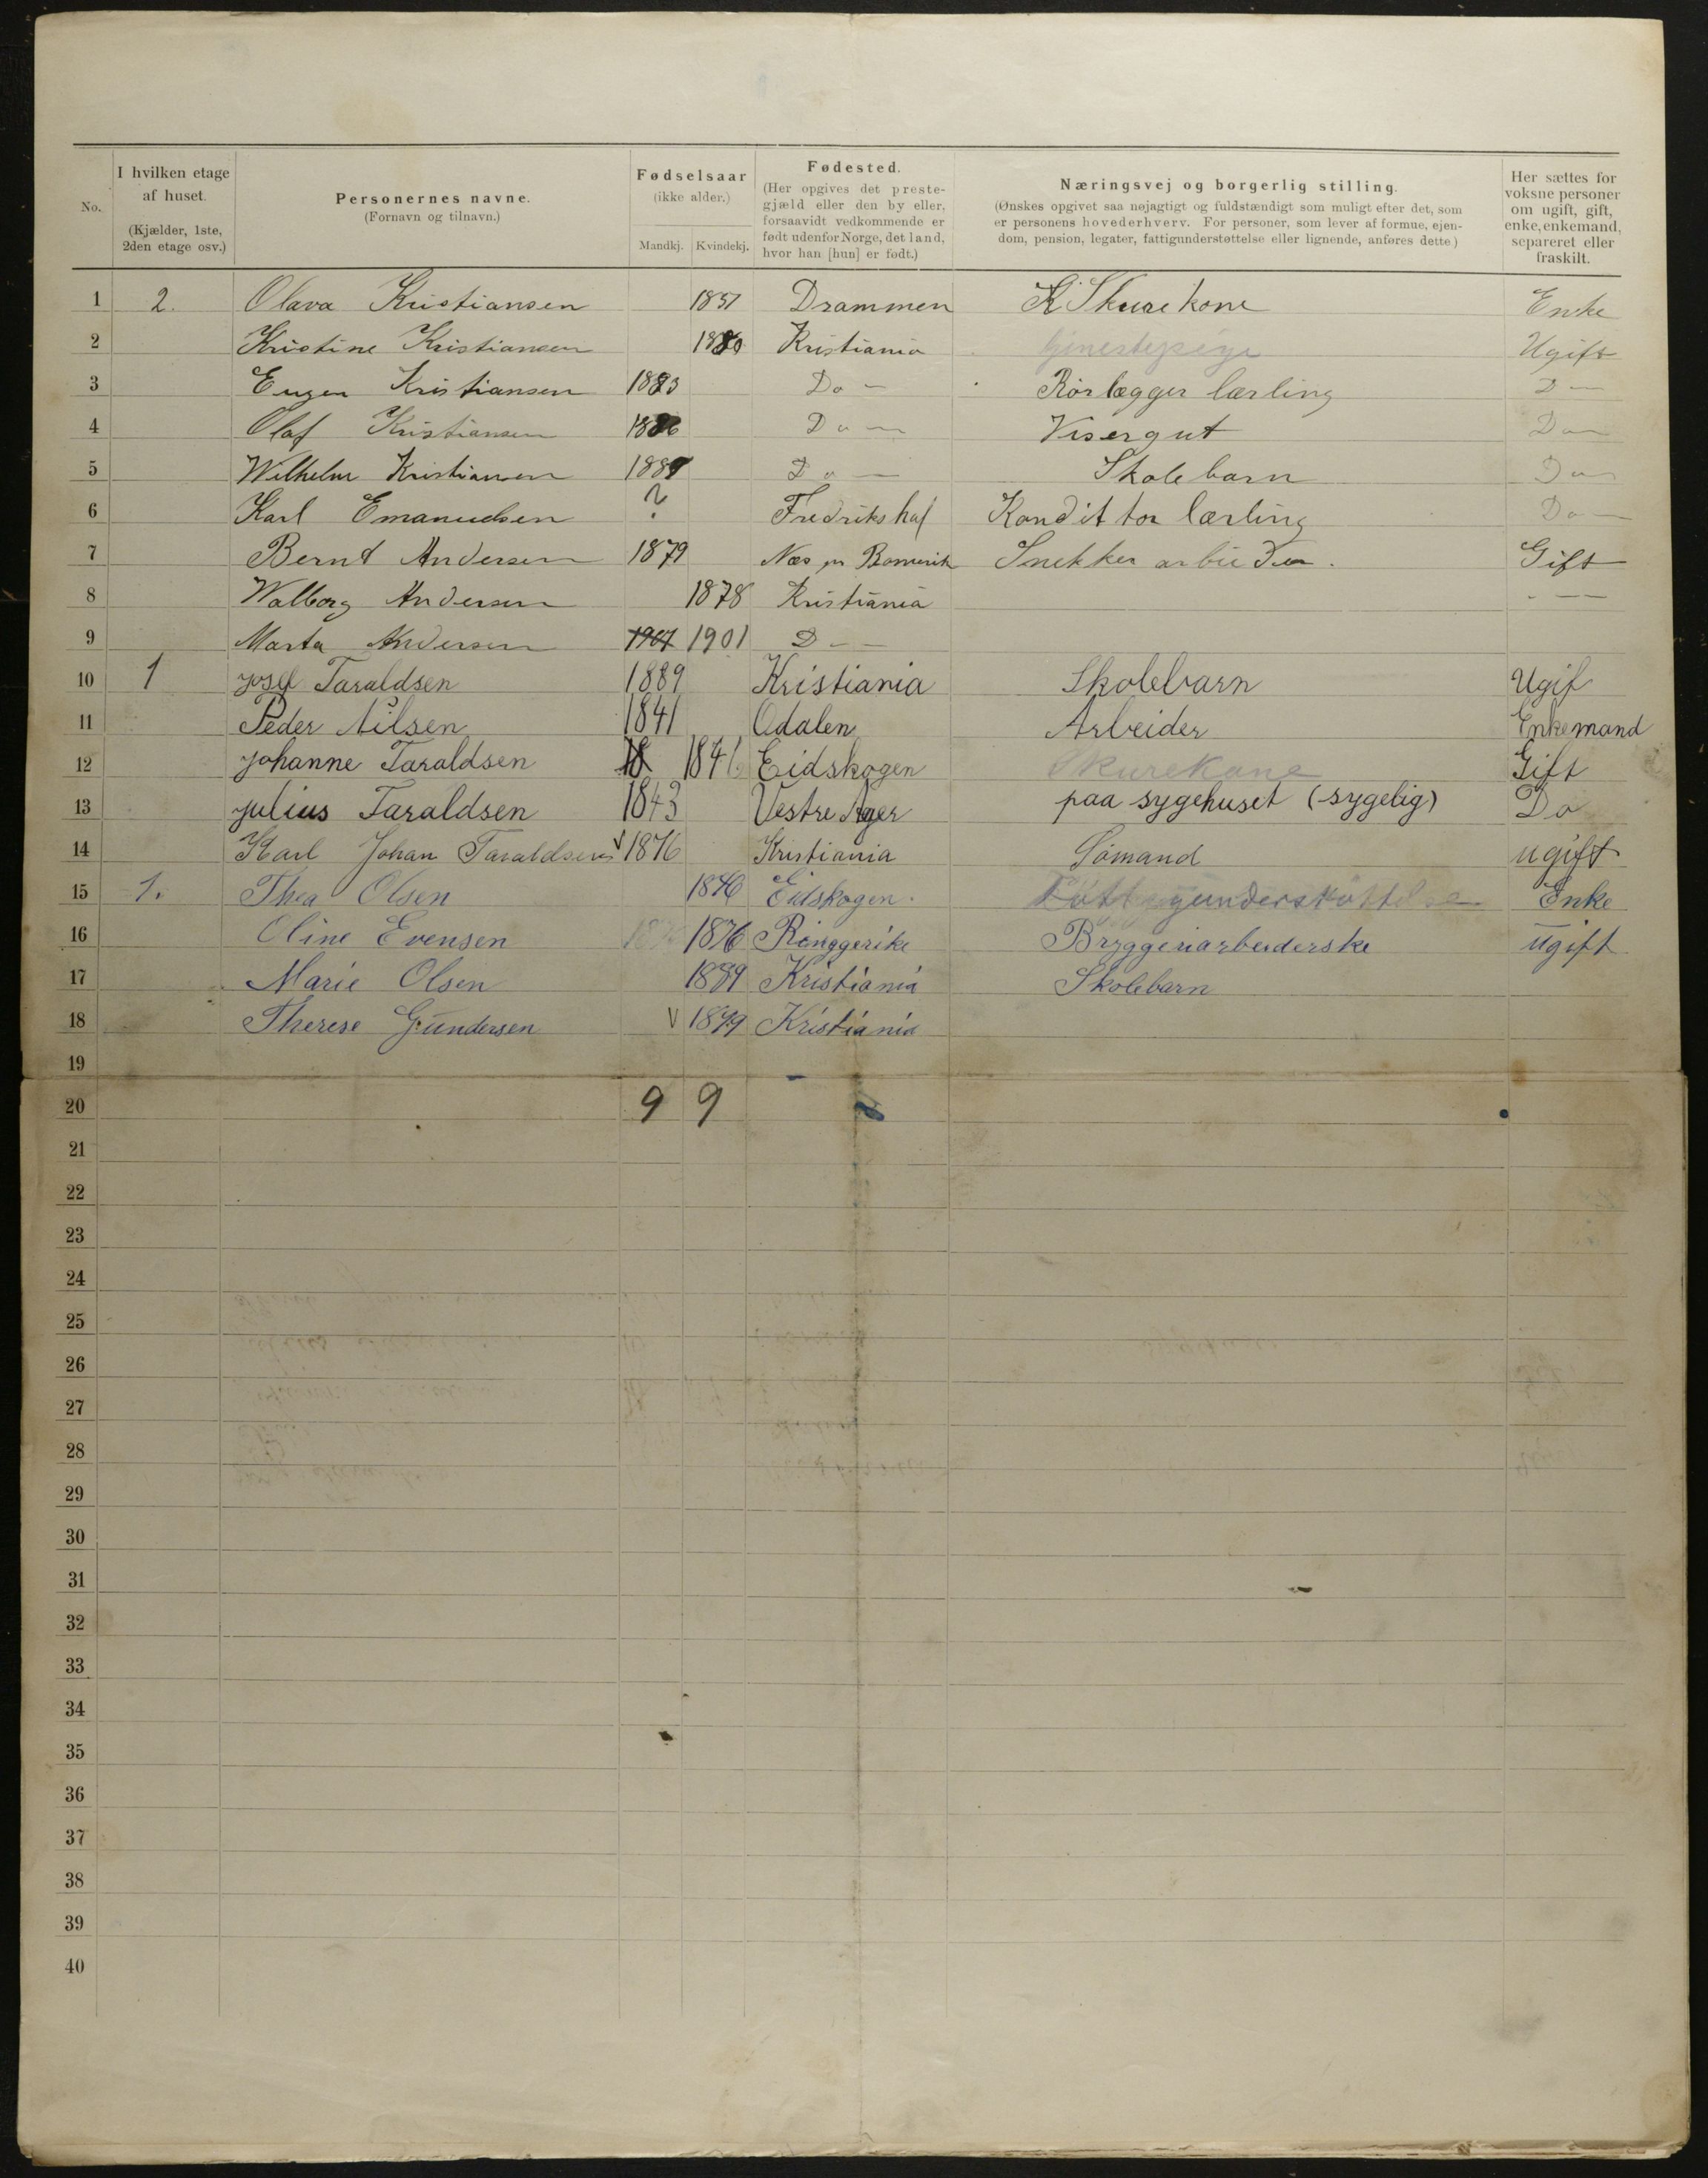 No.
I hvilken etage af huset. (Kjælder, 1ste, 2den etage osv.)
Personernes navne. (Fornavn og tilnavn.)
Fødselsaar (ikke alder.) Mandkj. Kvindekj.
Fødested. (Her opgives det prestegjæld eller den by eller, forsaavidt vedkommende er født udenfor Norge, det land, hvor han [hun] er født.)
Næringsvej og borgerlig stilling. (Ønskes opgivet saa nøjagtigt og fuldstændigt som muligt efter det, som er personens hovederhverv. For personer, som lever af formue, ejendom, pension, legater, fattigunderstøttelse eller lignende, anføres dette.)
Her sættes for voksne personer om ugift, gift, enke, enkemand, separeret eller fraskilt.
1 2. Olava Kristiansen 1851 Drammen Skurekone Enke
2 Kristine Kristiansen 1880 Kristiania Ugift
3 Eugen Kristiansen 1883 Do — Rörlægger lærling D —
4 Olaf Kristiansen 1886 Do — Visergut Do
5 Wilhelm Kristiansen 1889 Do — Skolebarn Do
6 Karl Emanuelsen ? Fredrikshal Kondittor lærling Do —
7 Bernt Andersen 1879 Næs pr Romerik Snekker arbeider. Gift
8 Walborg Andersen 1878 Kristiania - — —
9 Marta Andersen 1901 D — —
10 1 Josef Taraldsen 1889 Kristiania Skolebarn Ugif
11 Peder Nilsen 1841 Odalen Arbeider Enkemand
12 Johanne Taraldsen 18 1846 Eidskogen Skurekone Gift
13 Julius Taraldsen 1843 Vestre Ager paa sygehuset (sygelig) Do
14 Karl Johan Taraldsen V 1876 Kristiania Sömand ugift
15 1. Thea Olsen 1846 Eidskogen. Fattigunderstöttelse Enke
16 Oline Evensen 1876 Ringgerike Bryggeriarbeiderske ugift
17 Marie Olsen 1889 Kristiania Skolebarn
18 Therese Gundersen V 1899 Kristiania
19
20 9 9
21
22
23
24
25
26
27
28
29
30
31
32
33
34
35
36
37
38
39
40